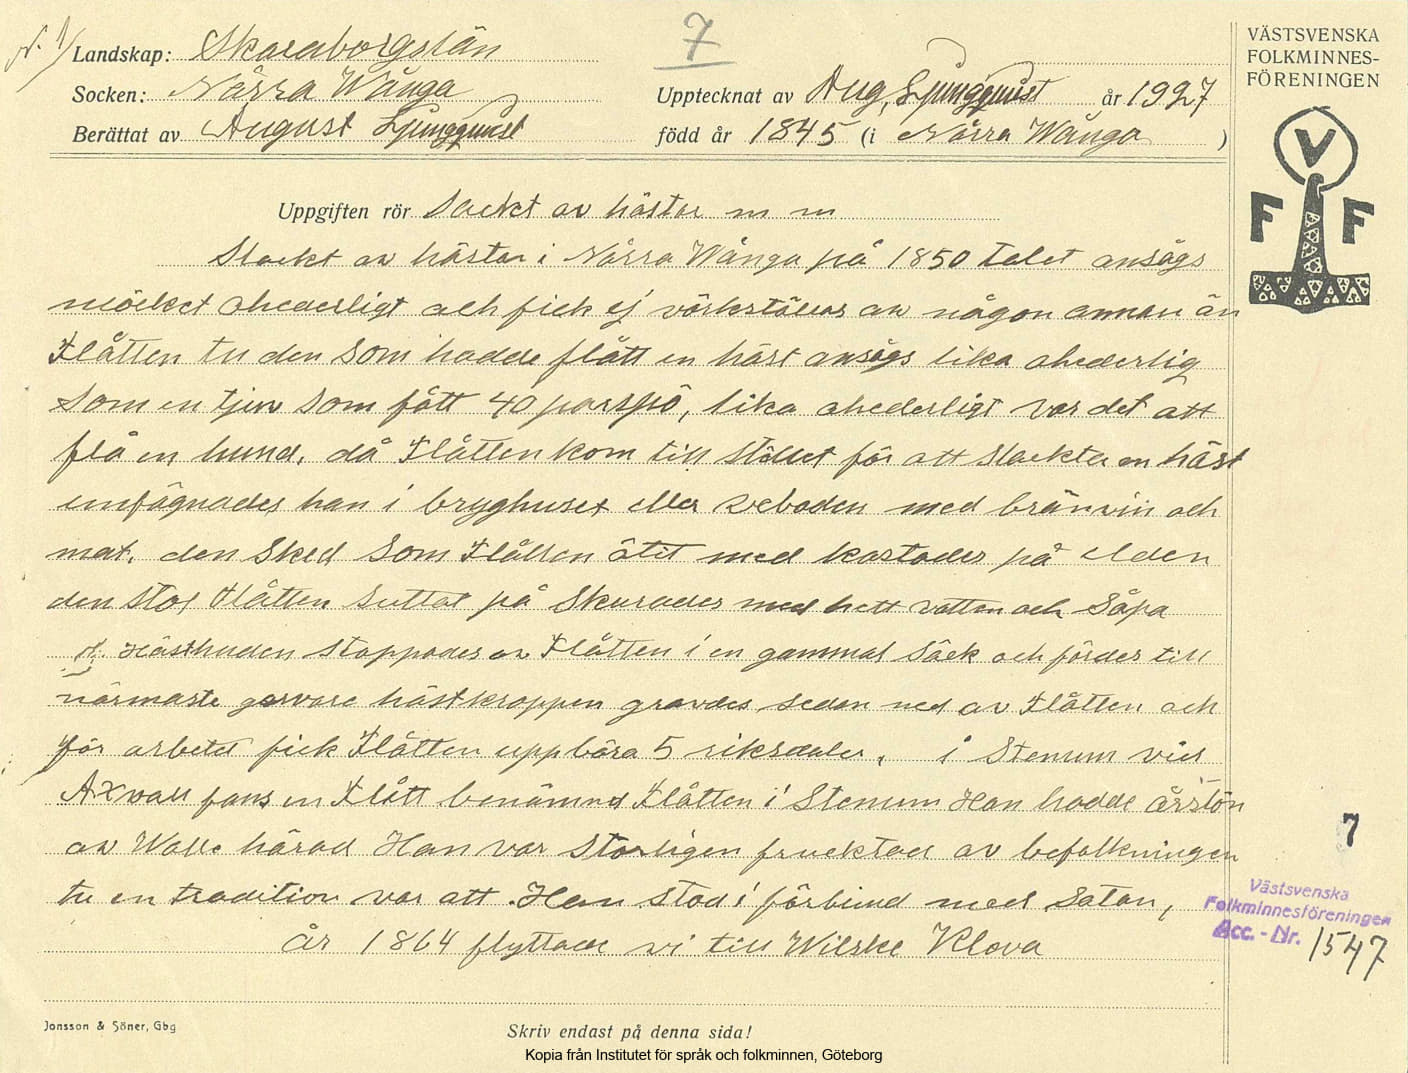 N. 1/
7
Landskap: Skaraborgslän
Socken: Nårra Wånga
Upptecknat av Aug, Ljungquist år 1927
Berättat av August Ljungquist född år 1845 (i Nårra Wånga )
VÄSTSVENSKA
FOLKMINNES-
FÖRENINGEN
V
F F
Uppgiften rör Slackt av hästar m m
Slackt av hästar i Nårra Wånga på 1850 talet ansågs
möcket ohederligt och fick ej värkställas av någon annan än
Flåtten tu den som hadde flått en häst ansågs lika ohederlig
som en tjuv som fått 40 parspö, lika ohederligt var det att
flå en hund. då Flåtten kom till stället för att slackta en häst
unfägnades han i bryghuset eller veboden med bränvin och
mat. den sked som Flåtten ätit med kastades på elden
den stol Flåtten suttat på skurades med hett vatten och såpa
Hästhuden stoppades av Flåtten i en gammal säck och fördes till
närmaste garvare hästkroppen gravdes sedan ned av Flåtten och
för arbetet fick Flåtten uppbära 5 riksdaler, i Stenum vid
Axvall fans en Flått benämnd Flåtten i Stenum Han hadde årslön
av Walle härad Han var storligen fruktad av befolkningen
tu en tradition var att Han stod i förbund med Satan,
år 1864 flyttade vi till Wilske Klova
7
Västsvenska
Folkminnesföreningen
Acc.-Nr. 1547
Jonsson & Söner, Gbg
Skriv endast på denna sida!
Kopia från Institutet för språk och folkminnen, Göteborg